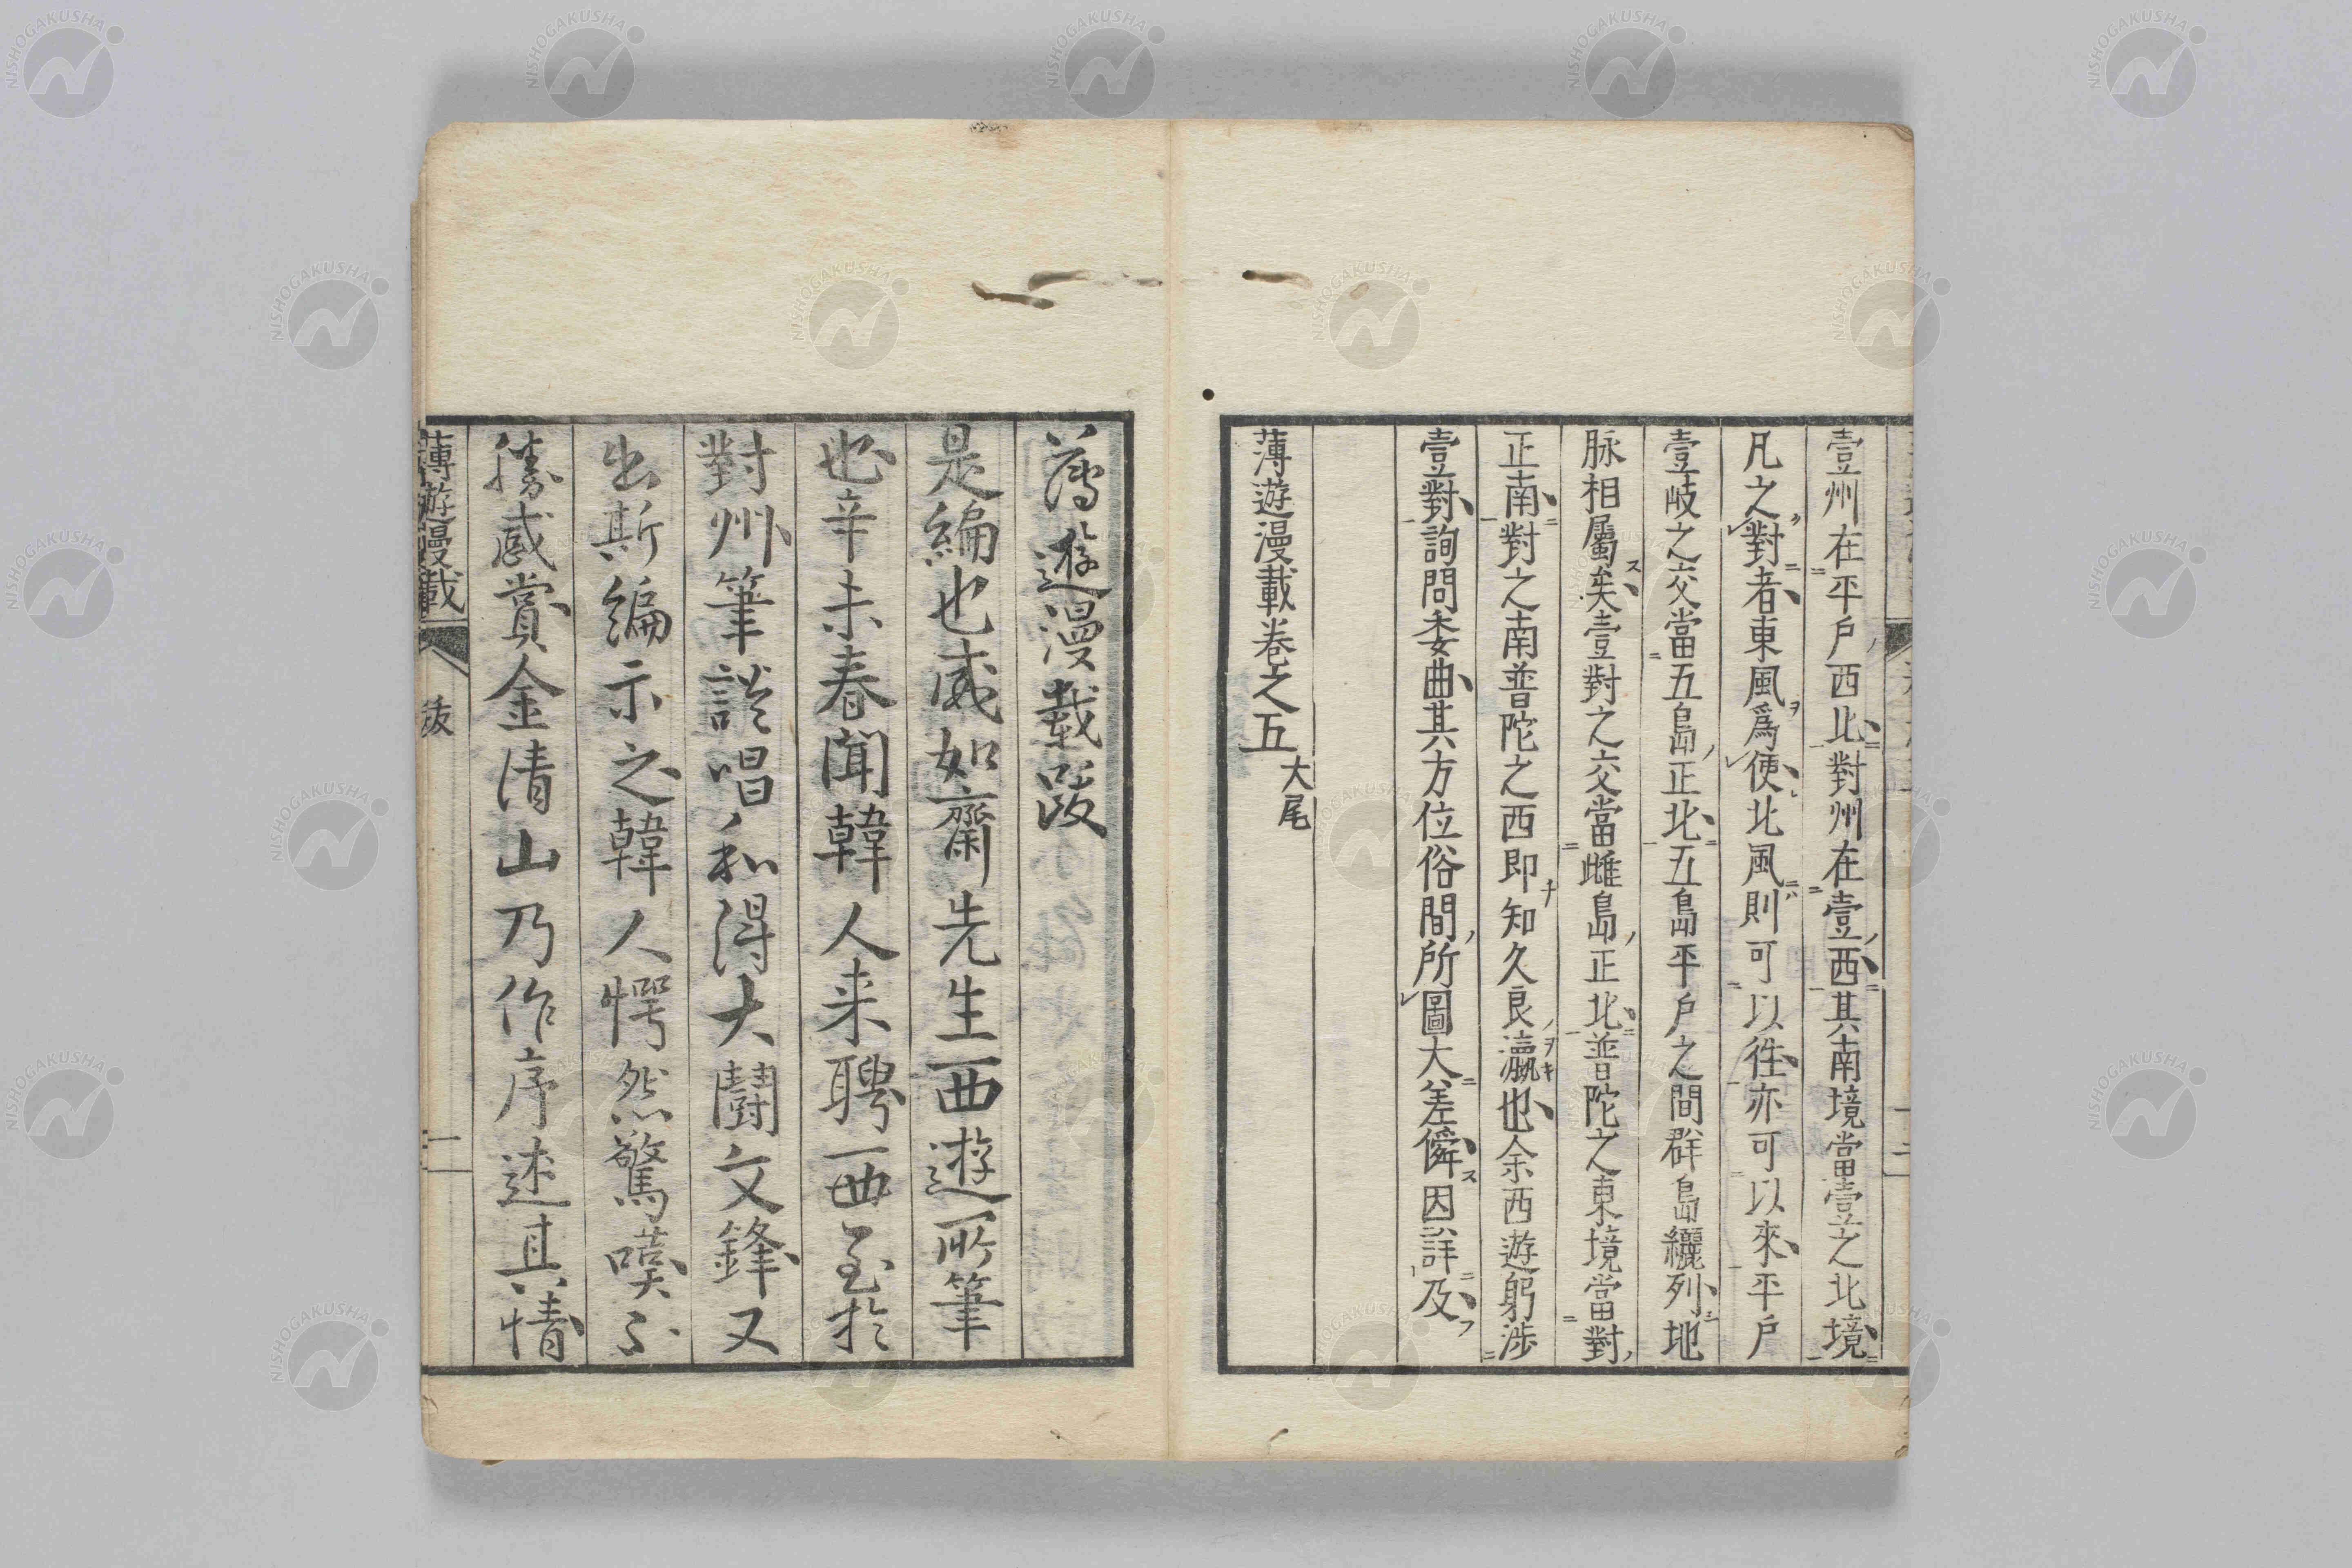 壹州在平戶西北對州在壹西其南境當壹之北境
凡之對者東風爲便北風則可以徃亦可以來平戶
壹岐之交當五島正北五島平戶之間群島纚列地
脉相屬矣壹對之交當雌島正北普陀之東境當對
正南對之南普陀之西即知久良瀛也余西遊躬涉
壹對詢問委曲其方位俗間所圖大差僢因詳及
薄遊漫載卷之五大尾
薄遊漫載跋
是編也威如齋先生西遊所筆
也辛未春聞韓人来聘西至於
對州筆談唱和得大鬪文鋒又
出斯編示之韓人愕然驚嘆不
勝感賞金清山乃作序述其情
薄遊漫載
跋
一
NISHOGAKUSHA